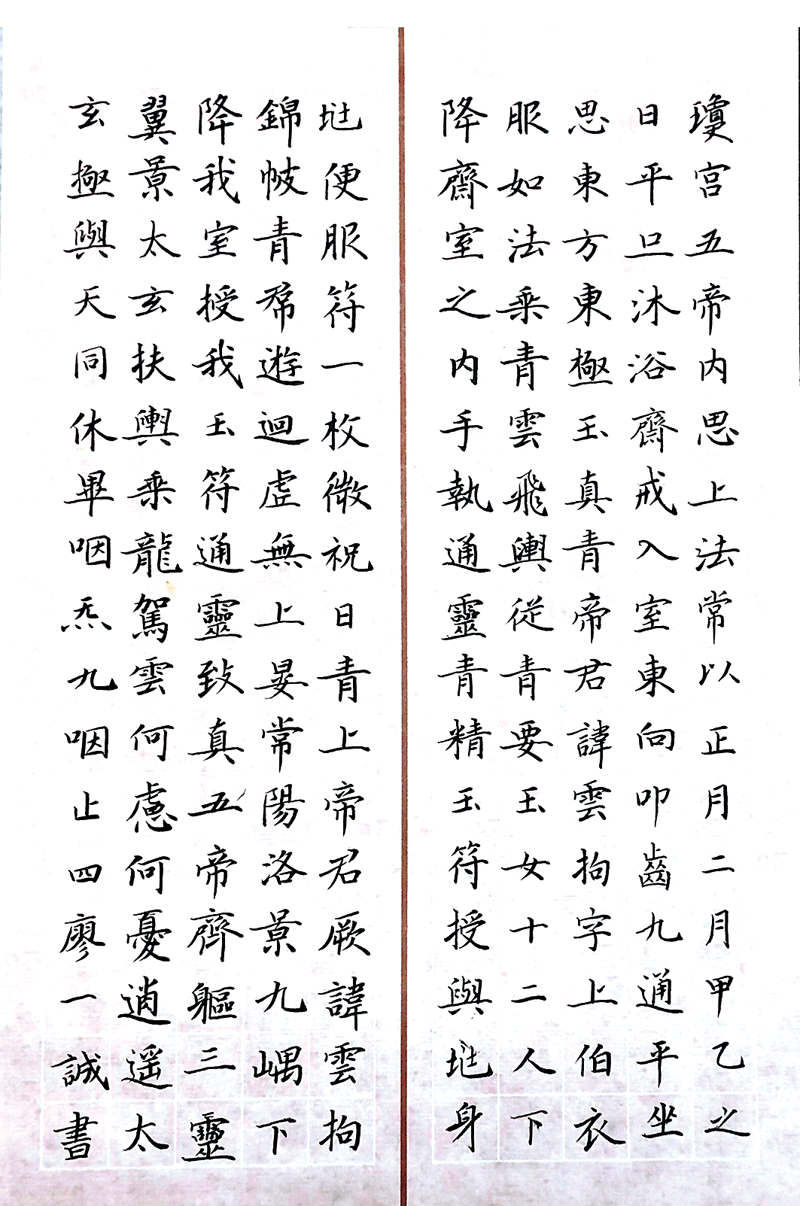 瓊宮五帝内思上法常以正月二月甲乙之
日平旦沐浴齋戒入室東向叩齒九通平坐
思東方東極玉真青帝君諱雲拘字上伯衣
服如法乘青雲飛輿從青要玉女十二人下
降齋室之内手執通靈青精玉符授與兆身
兆便服符一枚微祝曰青上帝君厥諱雲拘
錦帔青帬遊迴虛無上晏常陽洛景九嵎下
降我室授我玉符通靈致真五帝齊軀三靈
翼景太玄扶輿乘龍駕雲何慮何憂逍遥太
玄極與天同休畢咽炁九咽止四廖一誠書